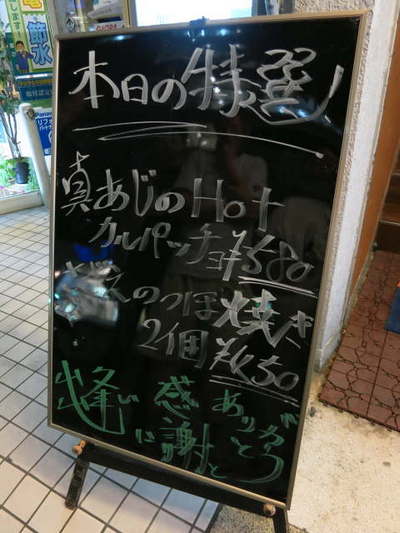 本日の特選
真あじのHot
カルパッチョ ¥580
さざえのつぼ焼き
2個 ¥650
出逢い
に
感謝
と
ありがとう
節水